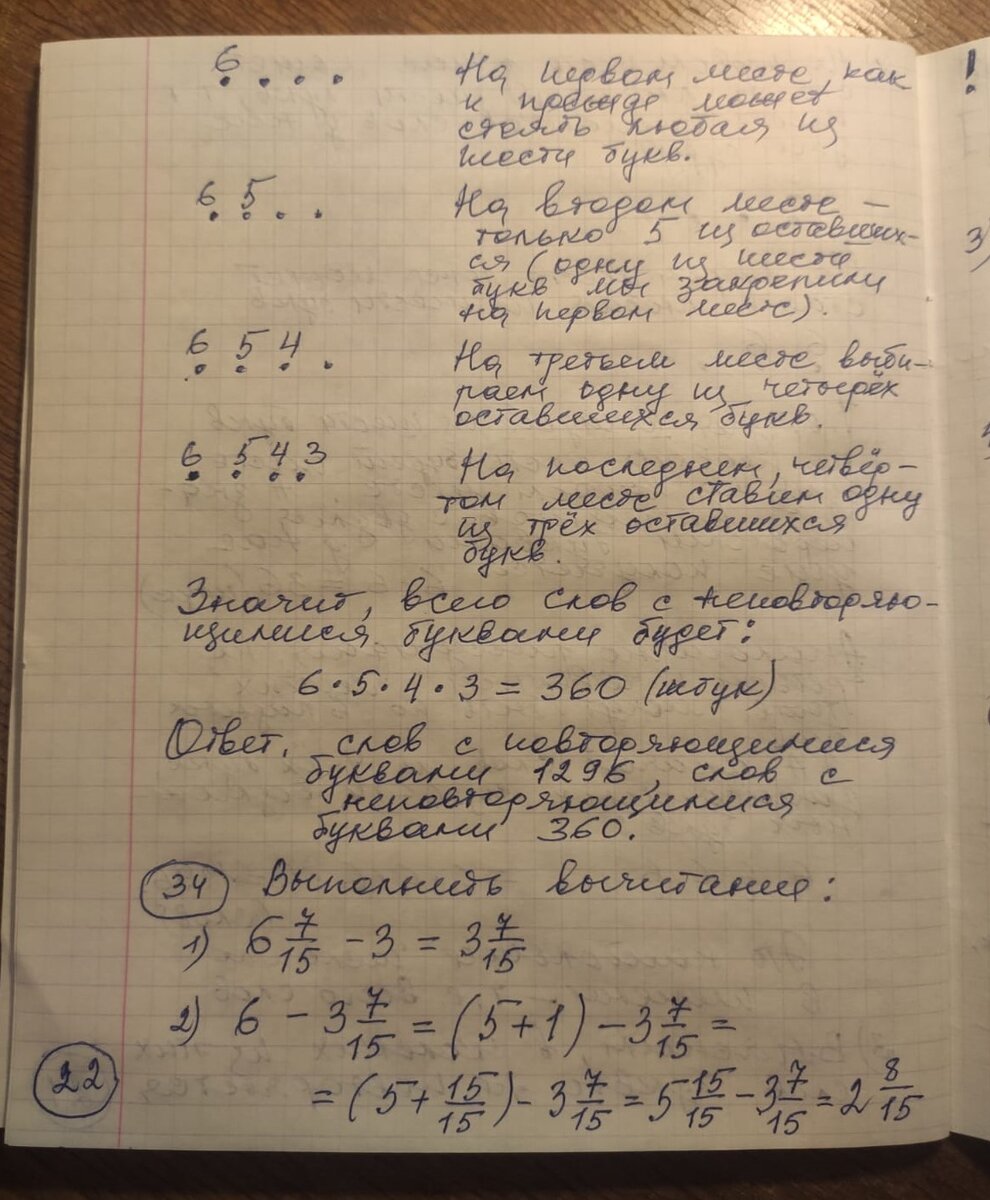 6
. . . .
На первом месте, как
и прежде может
стоять любая из
шести букв.
6 5
. . . .
На втором месте –
только 5 из оставших-
ся (одну из шести
букв мы закрепили
на первом месте).
6 5 4
. . . .
На третьем месте выби-
раем одну из четырёх
оставшихся букв.
6 5 4 3
. . . .
На последнем, четвёр-
том месте ставим одну
из трёх оставшихся
букв.
Значит, всего слов с неповторяю-
щимися буквами будет:
6 · 5 · 4 · 3 = 360 (штук)
Ответ. слов с повторяющимися
буквами 1296, слов с
неповторяющимися
буквами 360.
34 Выполнить вычитание:
1) 6 7/15 – 3 = 3 7/15
2) 6 – 3 7/15 = (5 + 1) – 3 7/15 =
22
= (5 + 15/15) – 3 7/15 = 5 15/15 – 3 7/15 = 2 8/15
!
3)